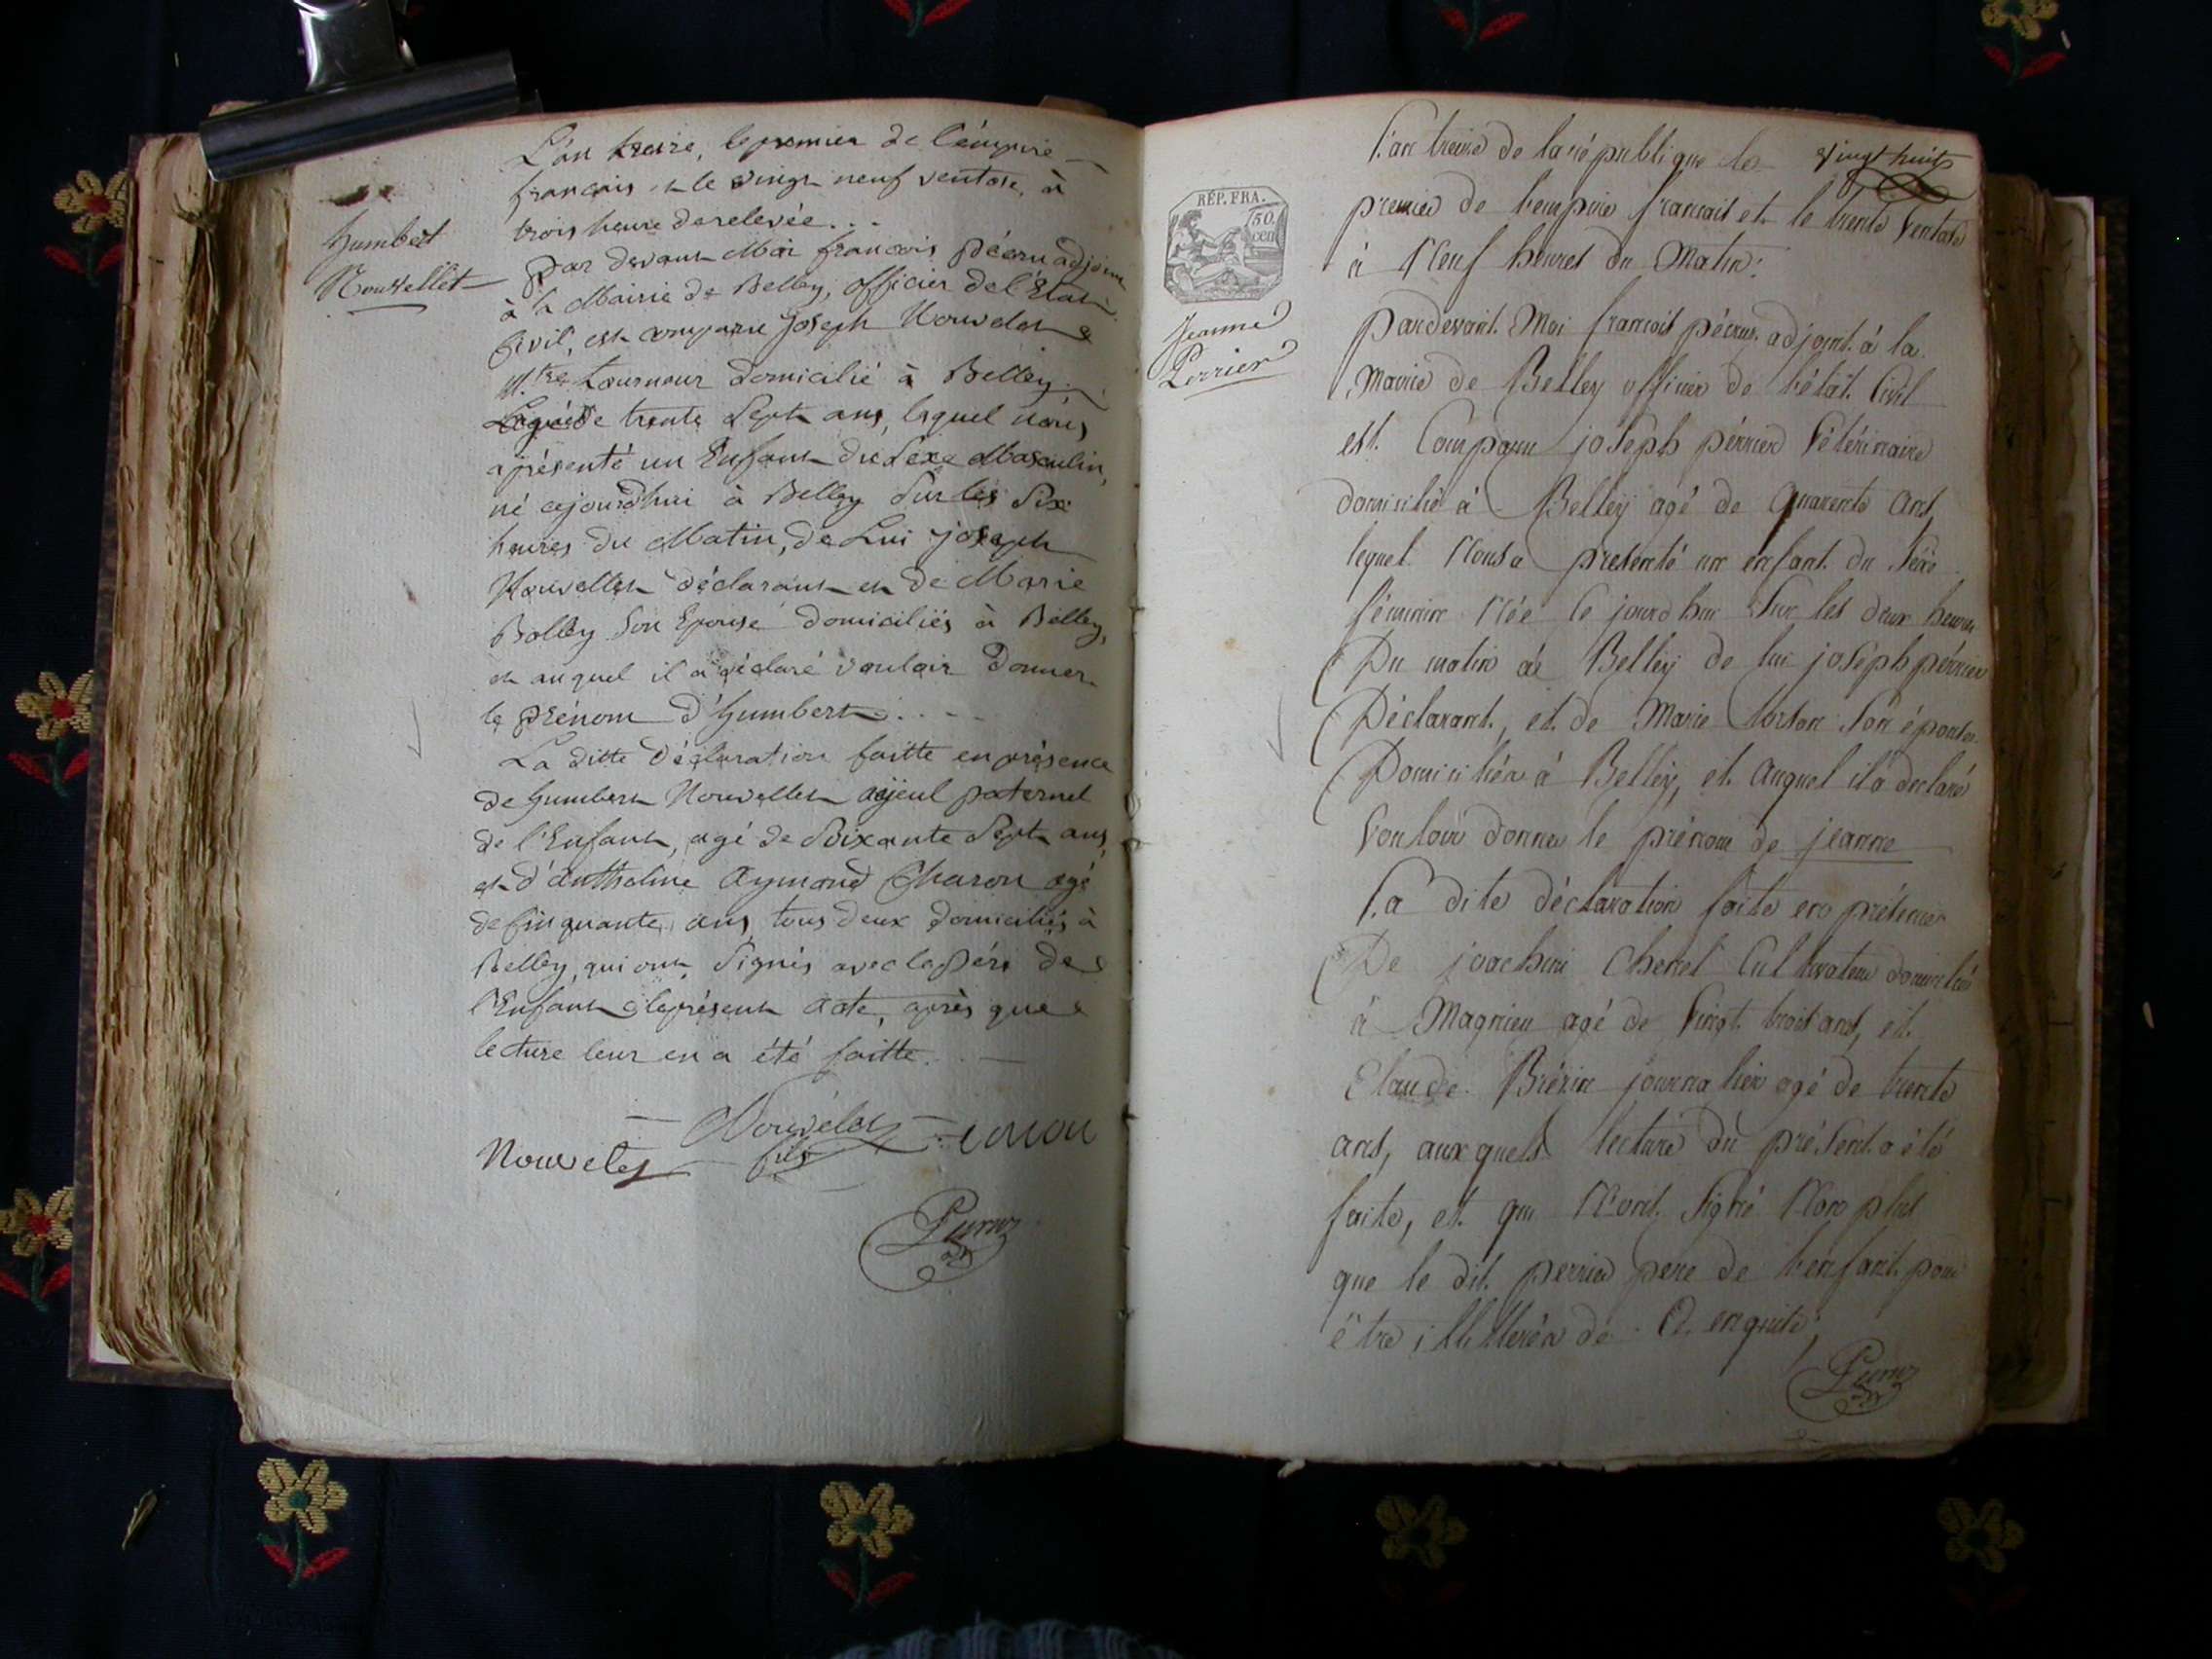 L'an treize, le premier de l'émpire
français et le vingt neuf ventose, à
trois heure de relevée...
Humbert
Nouvellet
Par devant Moi françois Pécrud adjoint
à la Mairie de Belley, officier de l'État
Civil, est comparu Joseph Nouvelet
M.tre tourneur domicilié à Belley
agé de trente Sept ans, lequel nous
a présenté un Enfant du Sexe Masculin,
né cejourd'hui à Belley Sur les Six
heures du Matin, de Lui joseph
Nouvellet déclarant et de Marie
Bolley Son Epouse domiciliés à Belley,
et auquel il a déclaré vouloir donner
le prénom d'humbert...
La ditte Déclaration faitte en présence
de humbert Nouvellet ayeul paternel
de l'Enfant, agé de Soixante Sept ans,
et d'anthelme Aymond Charon agé
de Cinquante ans, tous deux domiciliés à
Belley, qui ont Signés avec le Pére de
l'Enfant le présent acte, après que
lecture leur en a été faitte.
Nouvelet
fils
Nouvelet
RÉP. FRA.
50
cen
Jeanne
Perrier
vingt huit
L'an treize de la république le
premier de l'empire francait et le trente Ventose
à Neuf heures du Matin.
Pardevant Moi francoit pécrus adjoint à la
Mairie de Belley officier de l'état Civil
est Comparu joseph périer Vétérinaire
domicilié à Belley agé de quarente ans,
lequel Nous a presenté un enfant du Sexe
féminin Née le jourd'hui Sur les deux heures
Du matin à Belley de lui joseph périer
Déclarant, et de Marie Son épouse
Domiciliés à Belley, et Auquel il a declaré
Vouloir donner le prénom de jeanne
La dite déclaration faite en présence
De joachim Cultivateur domicilié
à Magnieu agé de Vingt trois ans, et
Claude journalier agé de trente
ans, auxquels lecture du présent a été
faite, et qui N'ont Signé Non plus
que le dit perrier pere de l'enfant pour
être illitteréz de Ce enquits,